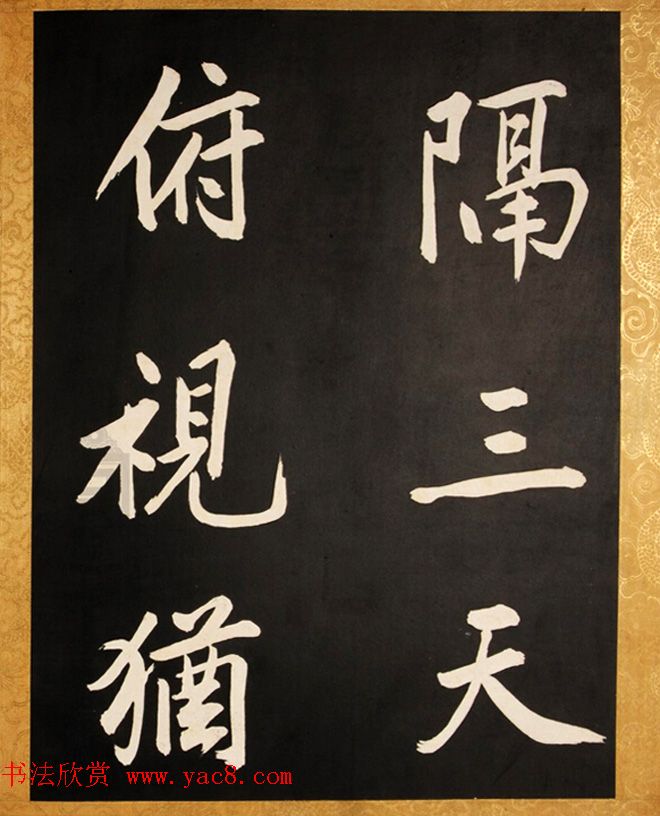 隔三天
俯視猶
书法欣赏 www.yac8.com